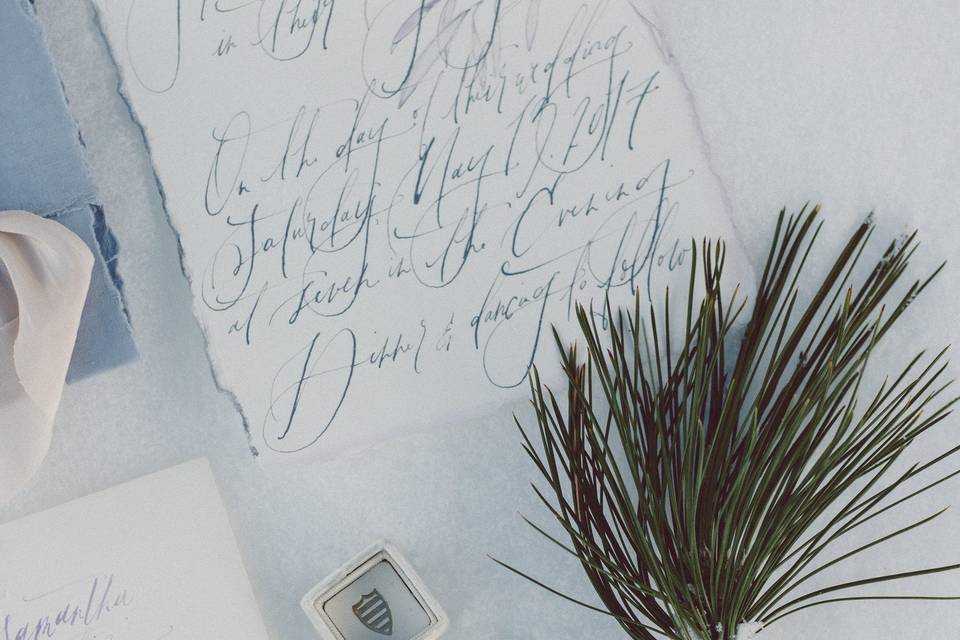 in their
On the day of their wedding
Saturday, May 13, 2017
at seven in the Evening
Dinner & dancing to follow
Samantha